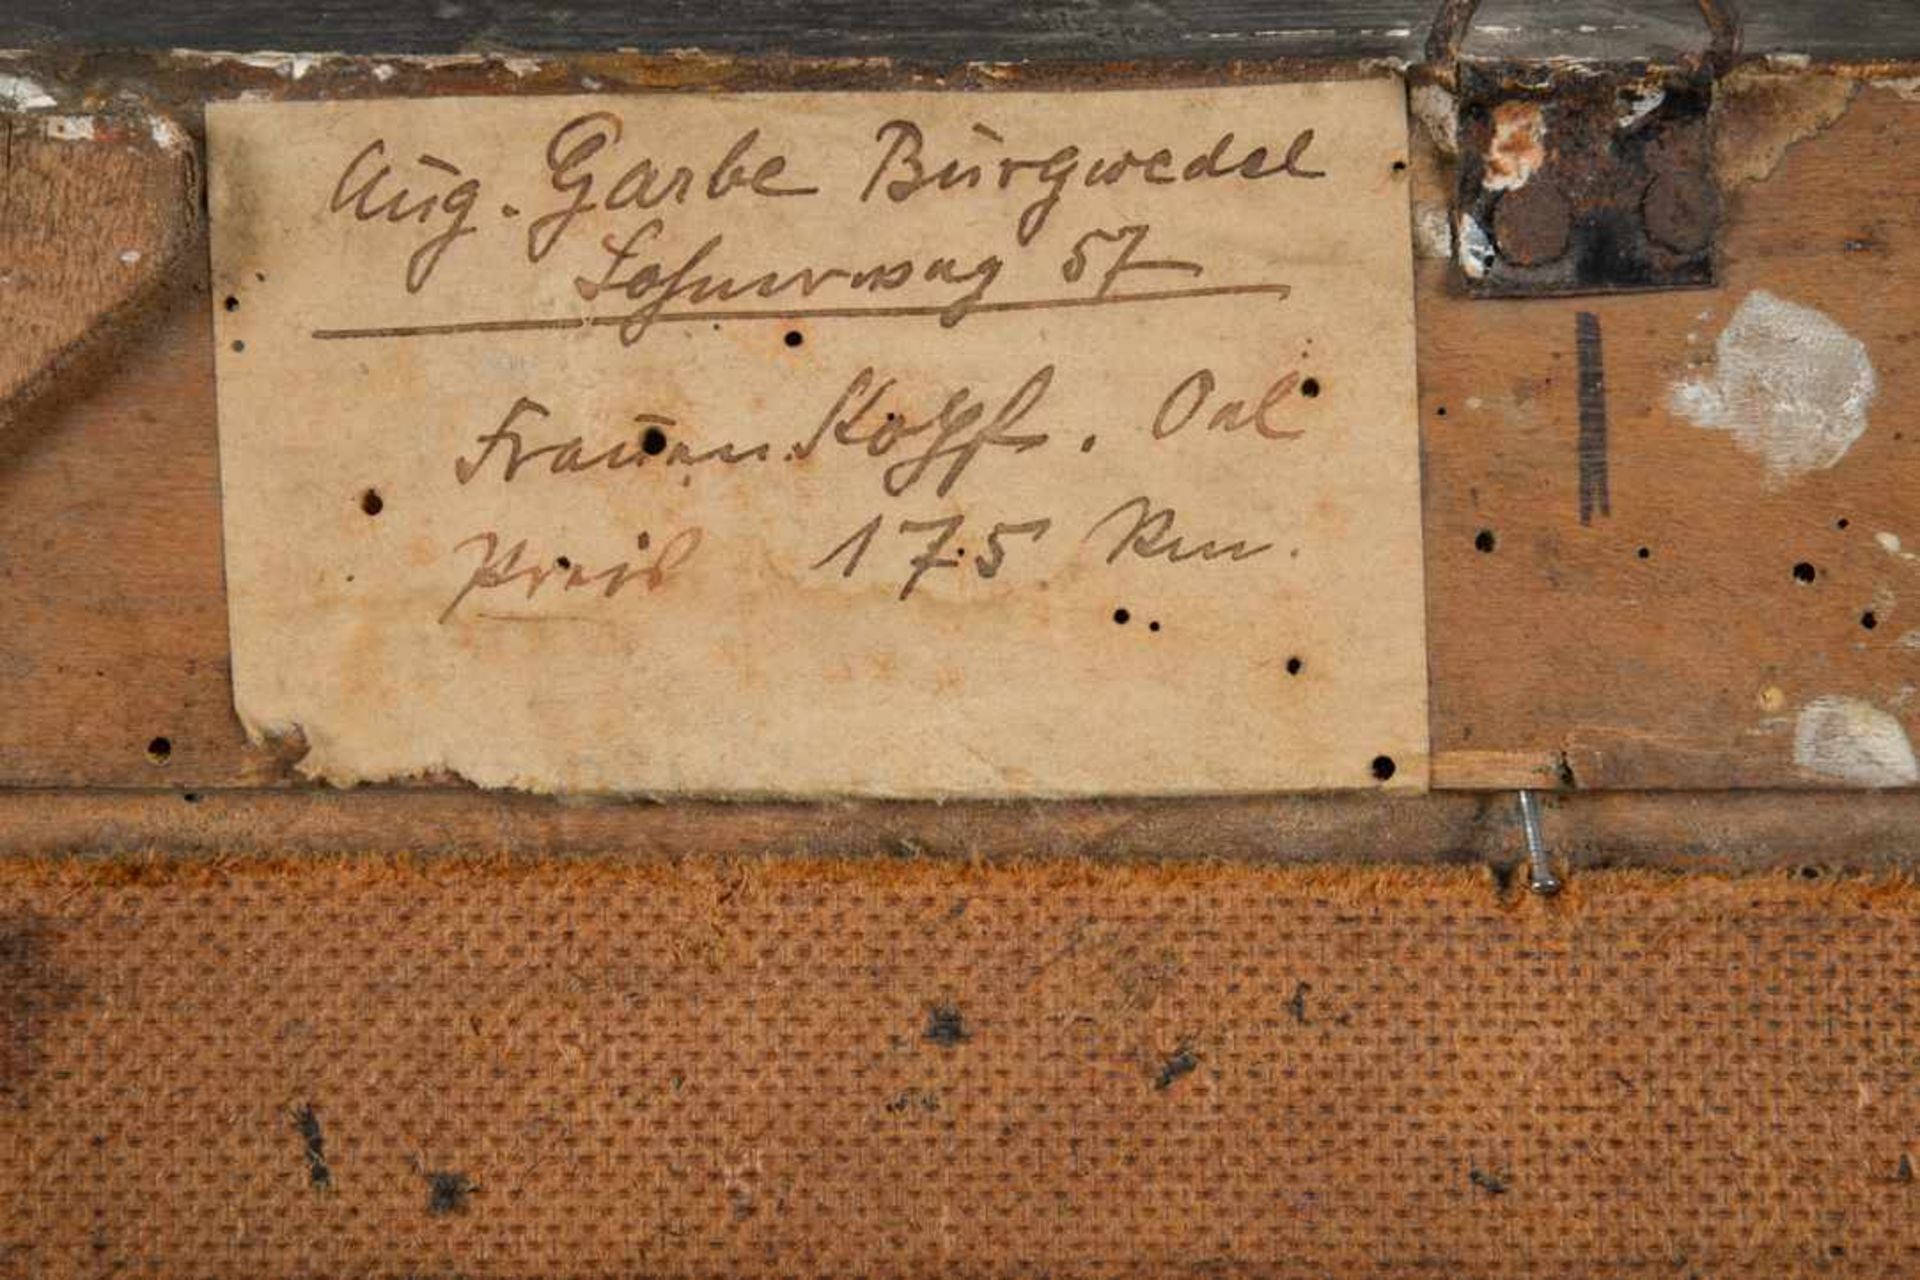 Aug. Garbe Burgwedel
57
Frauen Kopf. Oel
Preis 175 Rm.